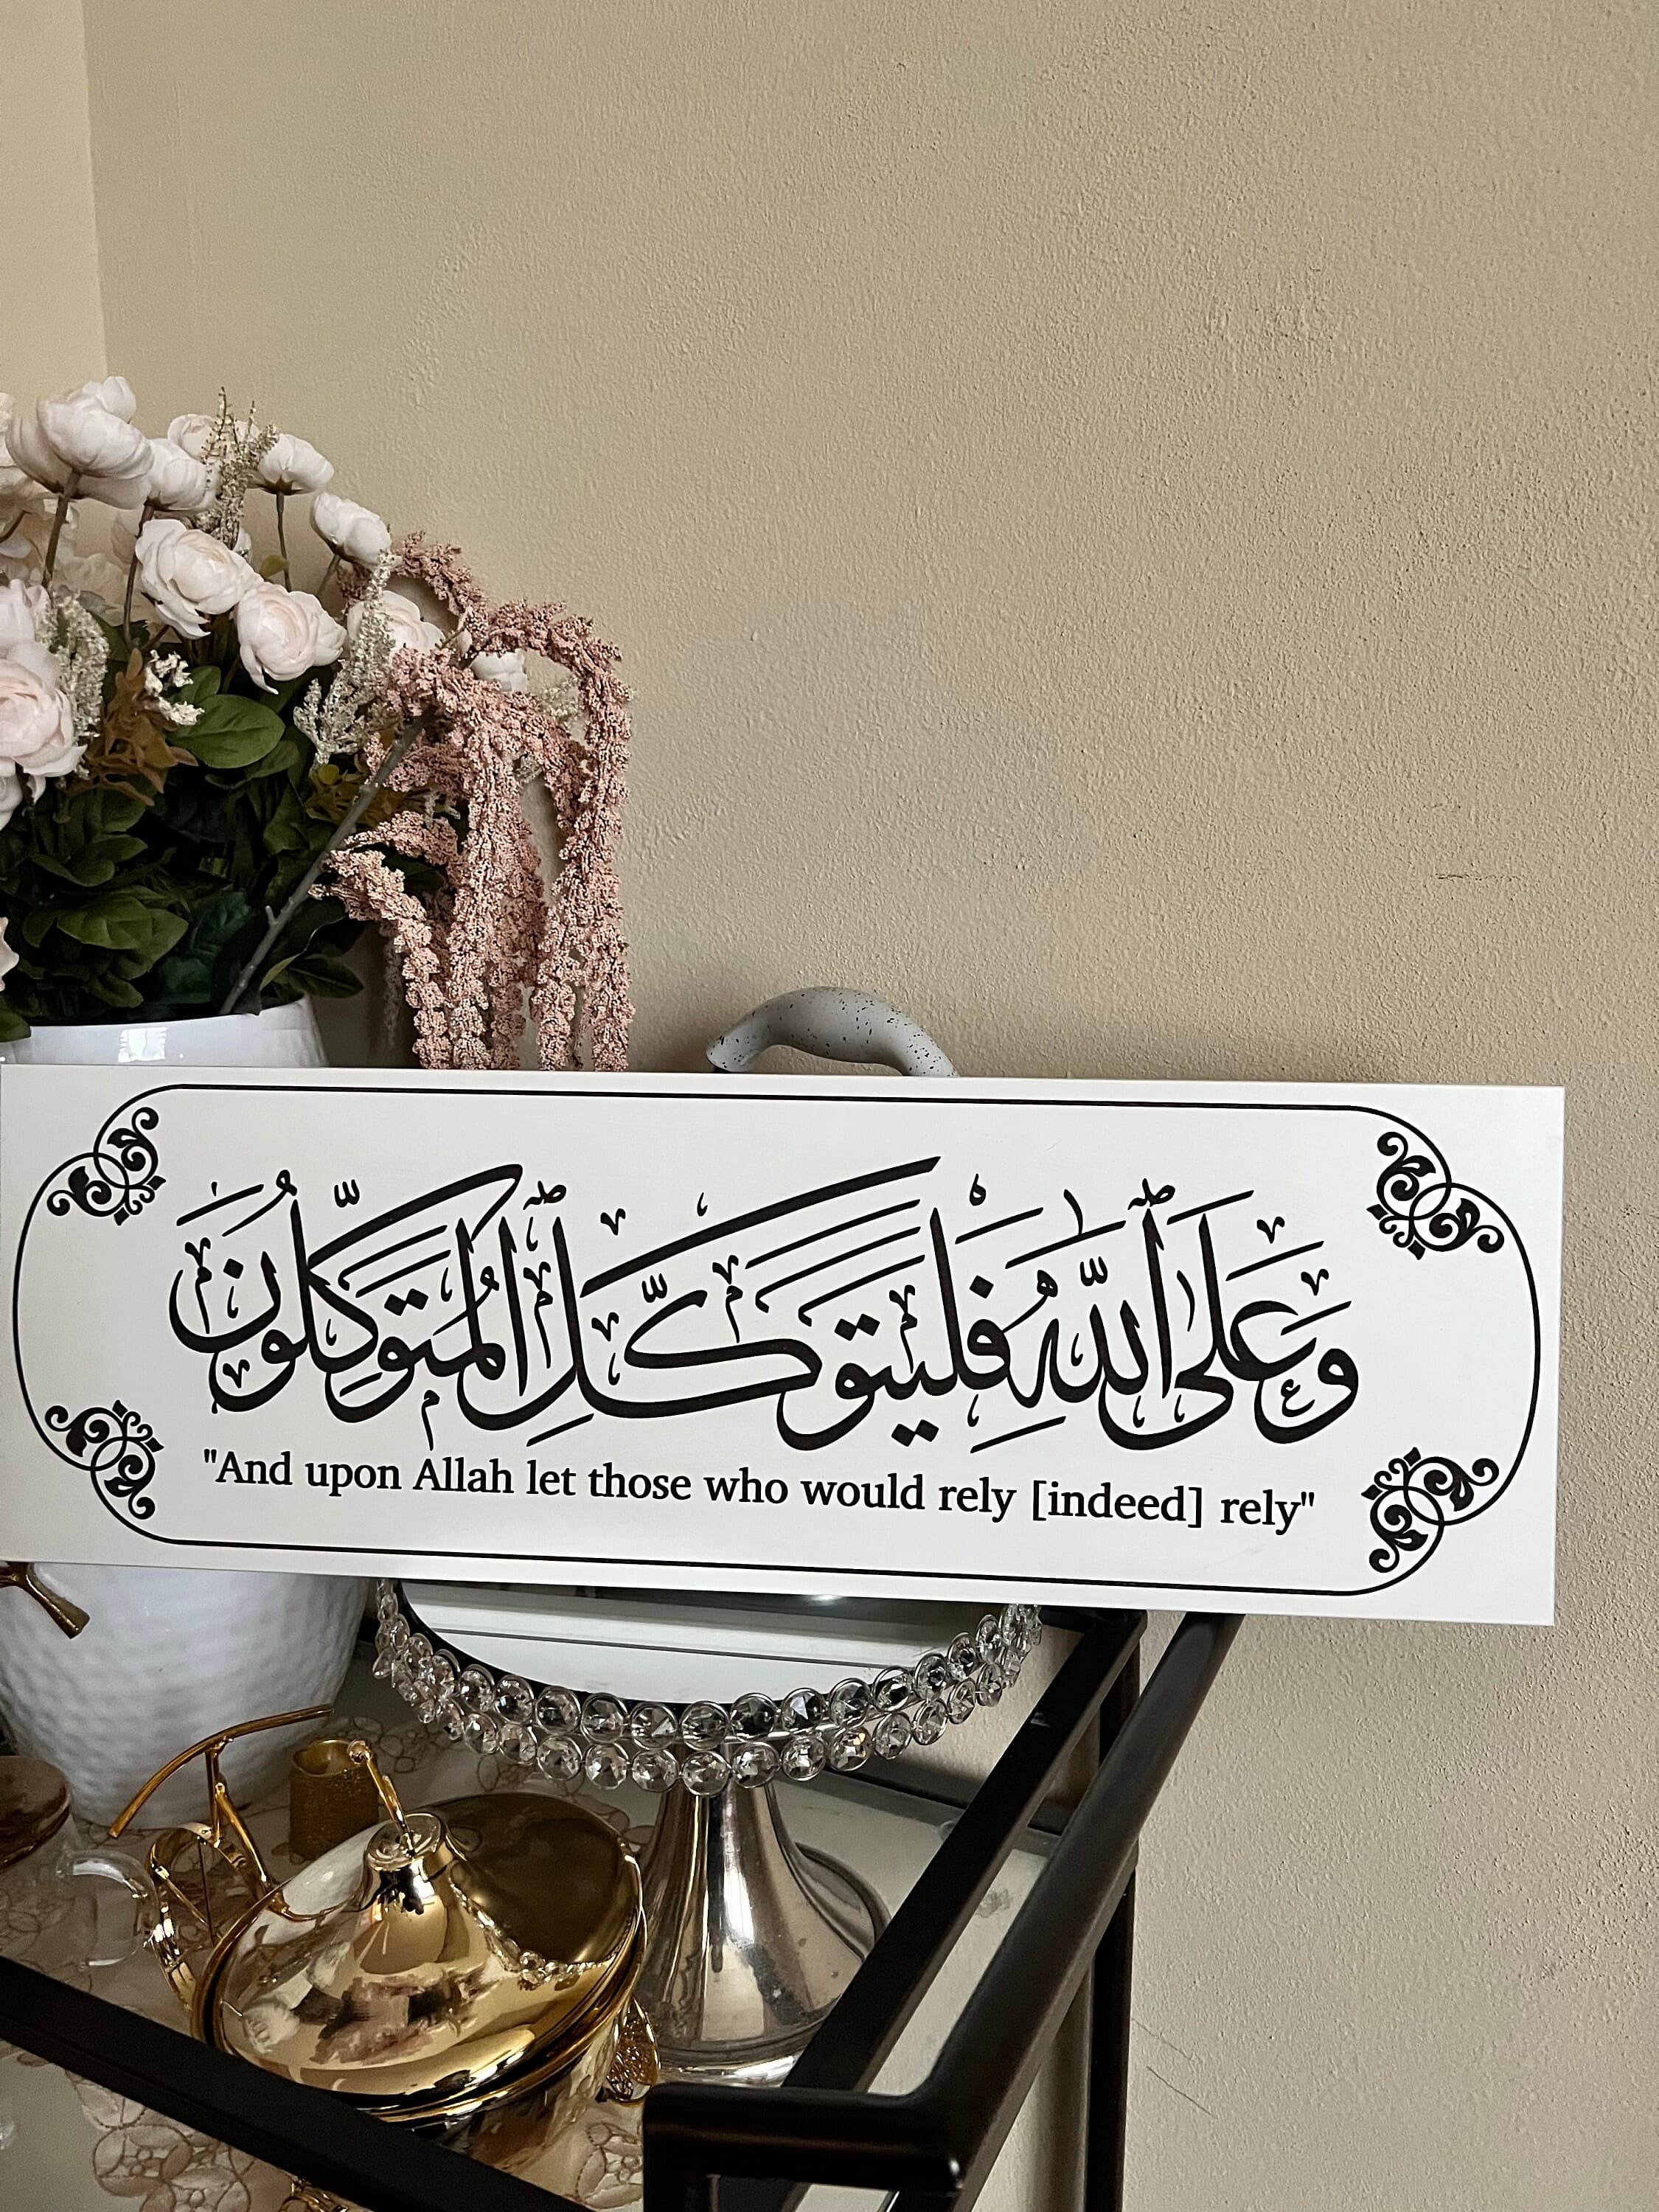 وَعَلَى ٱللَّهِ فَلْيَتَوَكَّلِ ٱلْمُتَوَكِّلُونَ
"And upon Allah let those who would rely [indeed] rely"